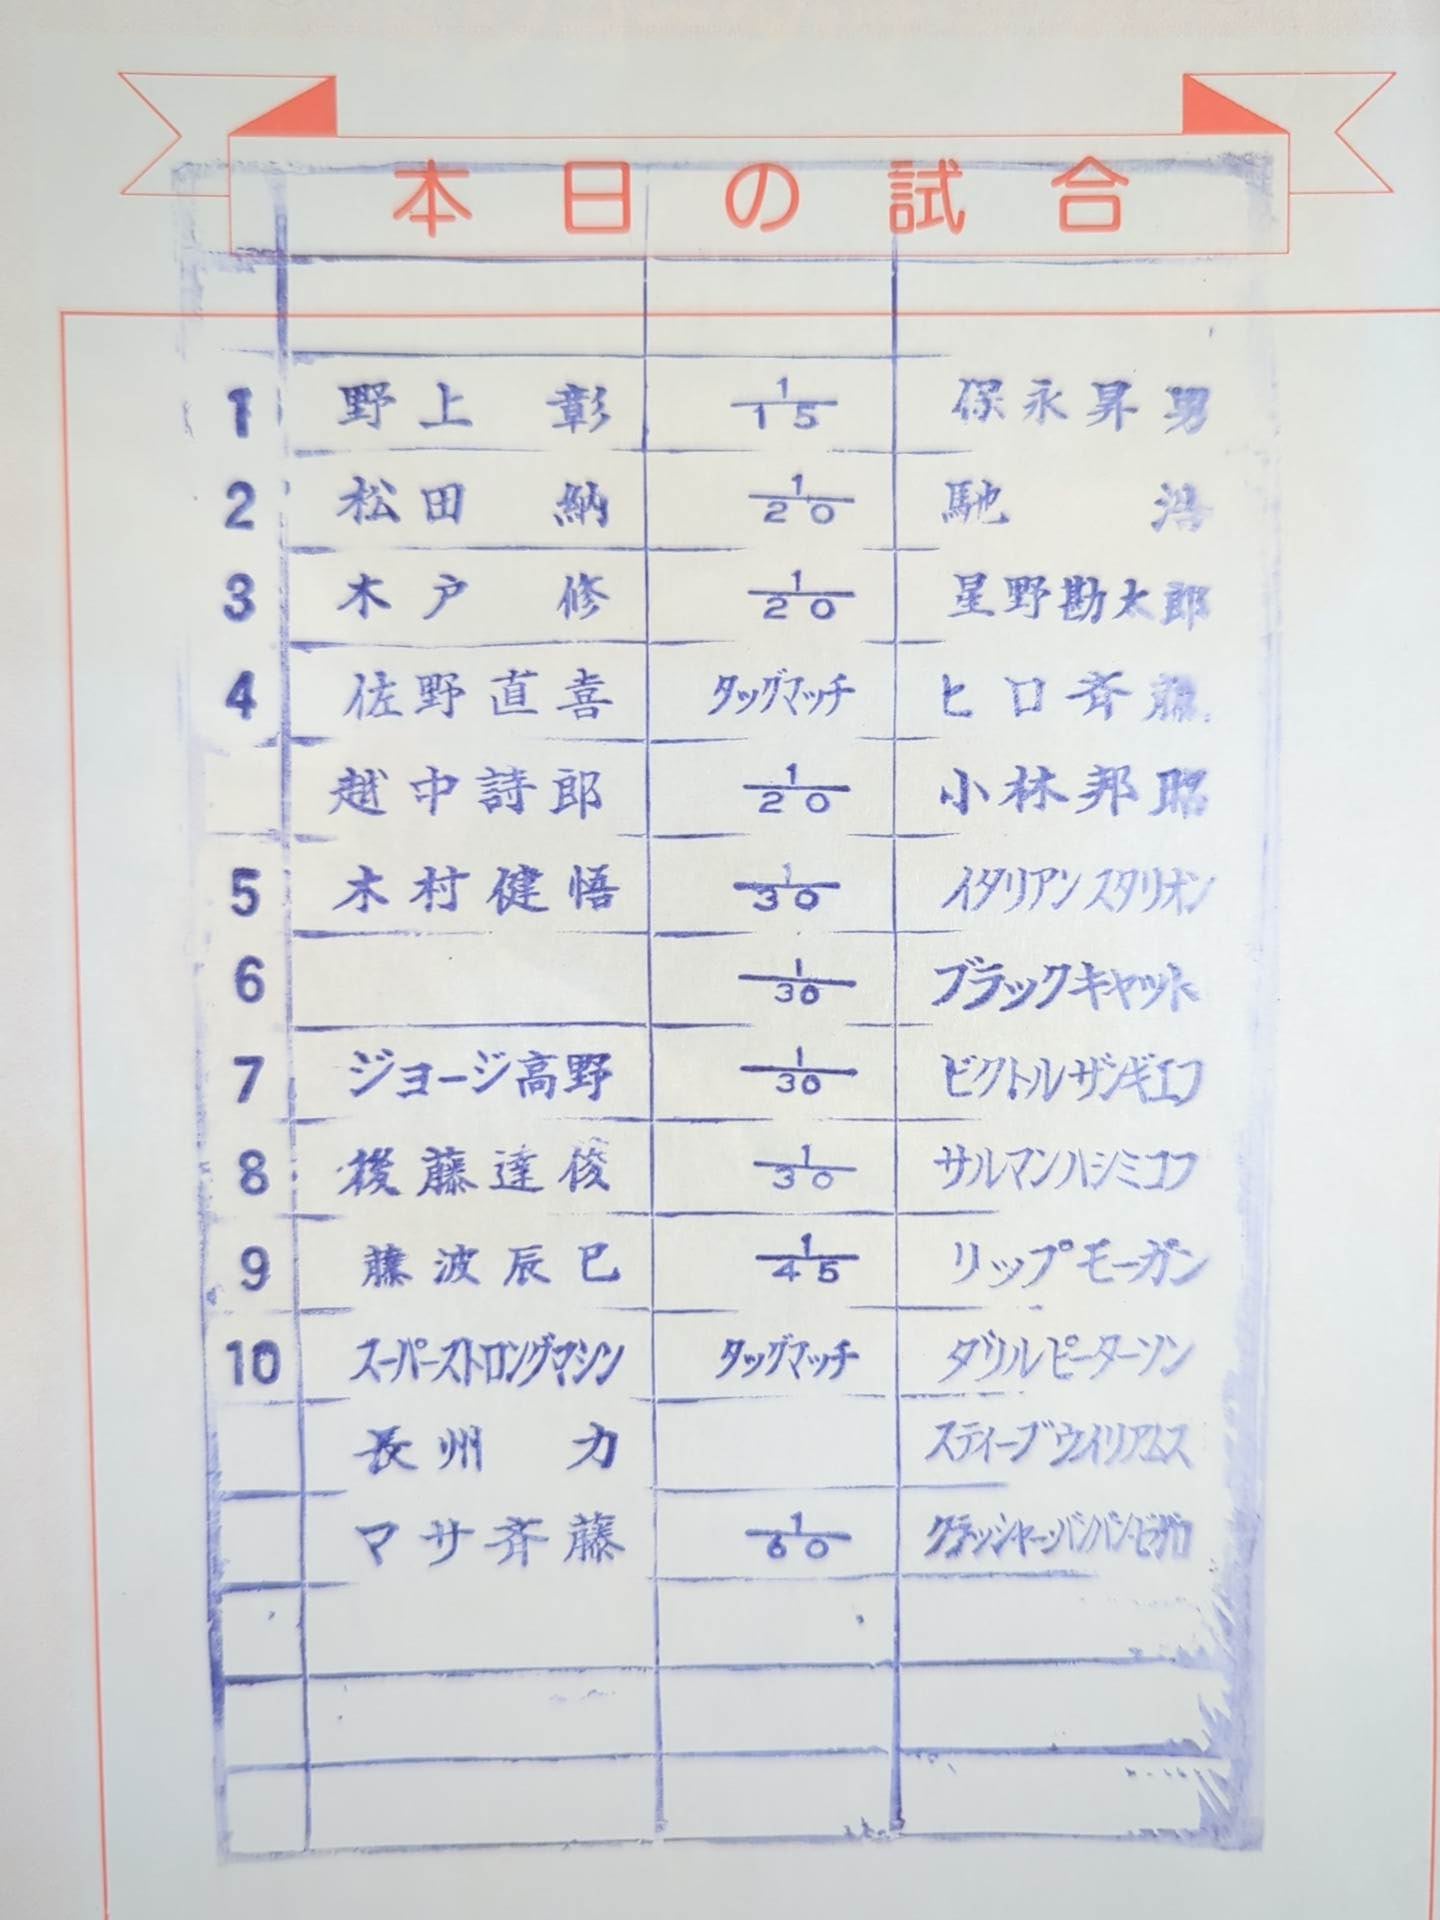 本日の試合
1 野上 彰 1/15 保永昇男
2 松田 納 1/20 馳 浩
3 木戸 修 1/20 星野勘太郎
4 佐野直喜 タッグマッチ ヒロ斉藤
越中詩郎 1/20 小林邦昭
5 木村健悟 1/30 イタリアンスタリオン
6 1/30 ブラックキャット
7 ジョージ高野 1/30 ビクトルザンギエフ
8 後藤達俊 1/30 サルマンハシミコフ
9 藤波辰巳 1/45 リップモーガン
10 スーパーストロングマシン タッグマッチ ダリルピーターソン
長州 力 スティーブウィリアムス
マサ斉藤 1/60 クラッシャー・バンバン・ビガロ